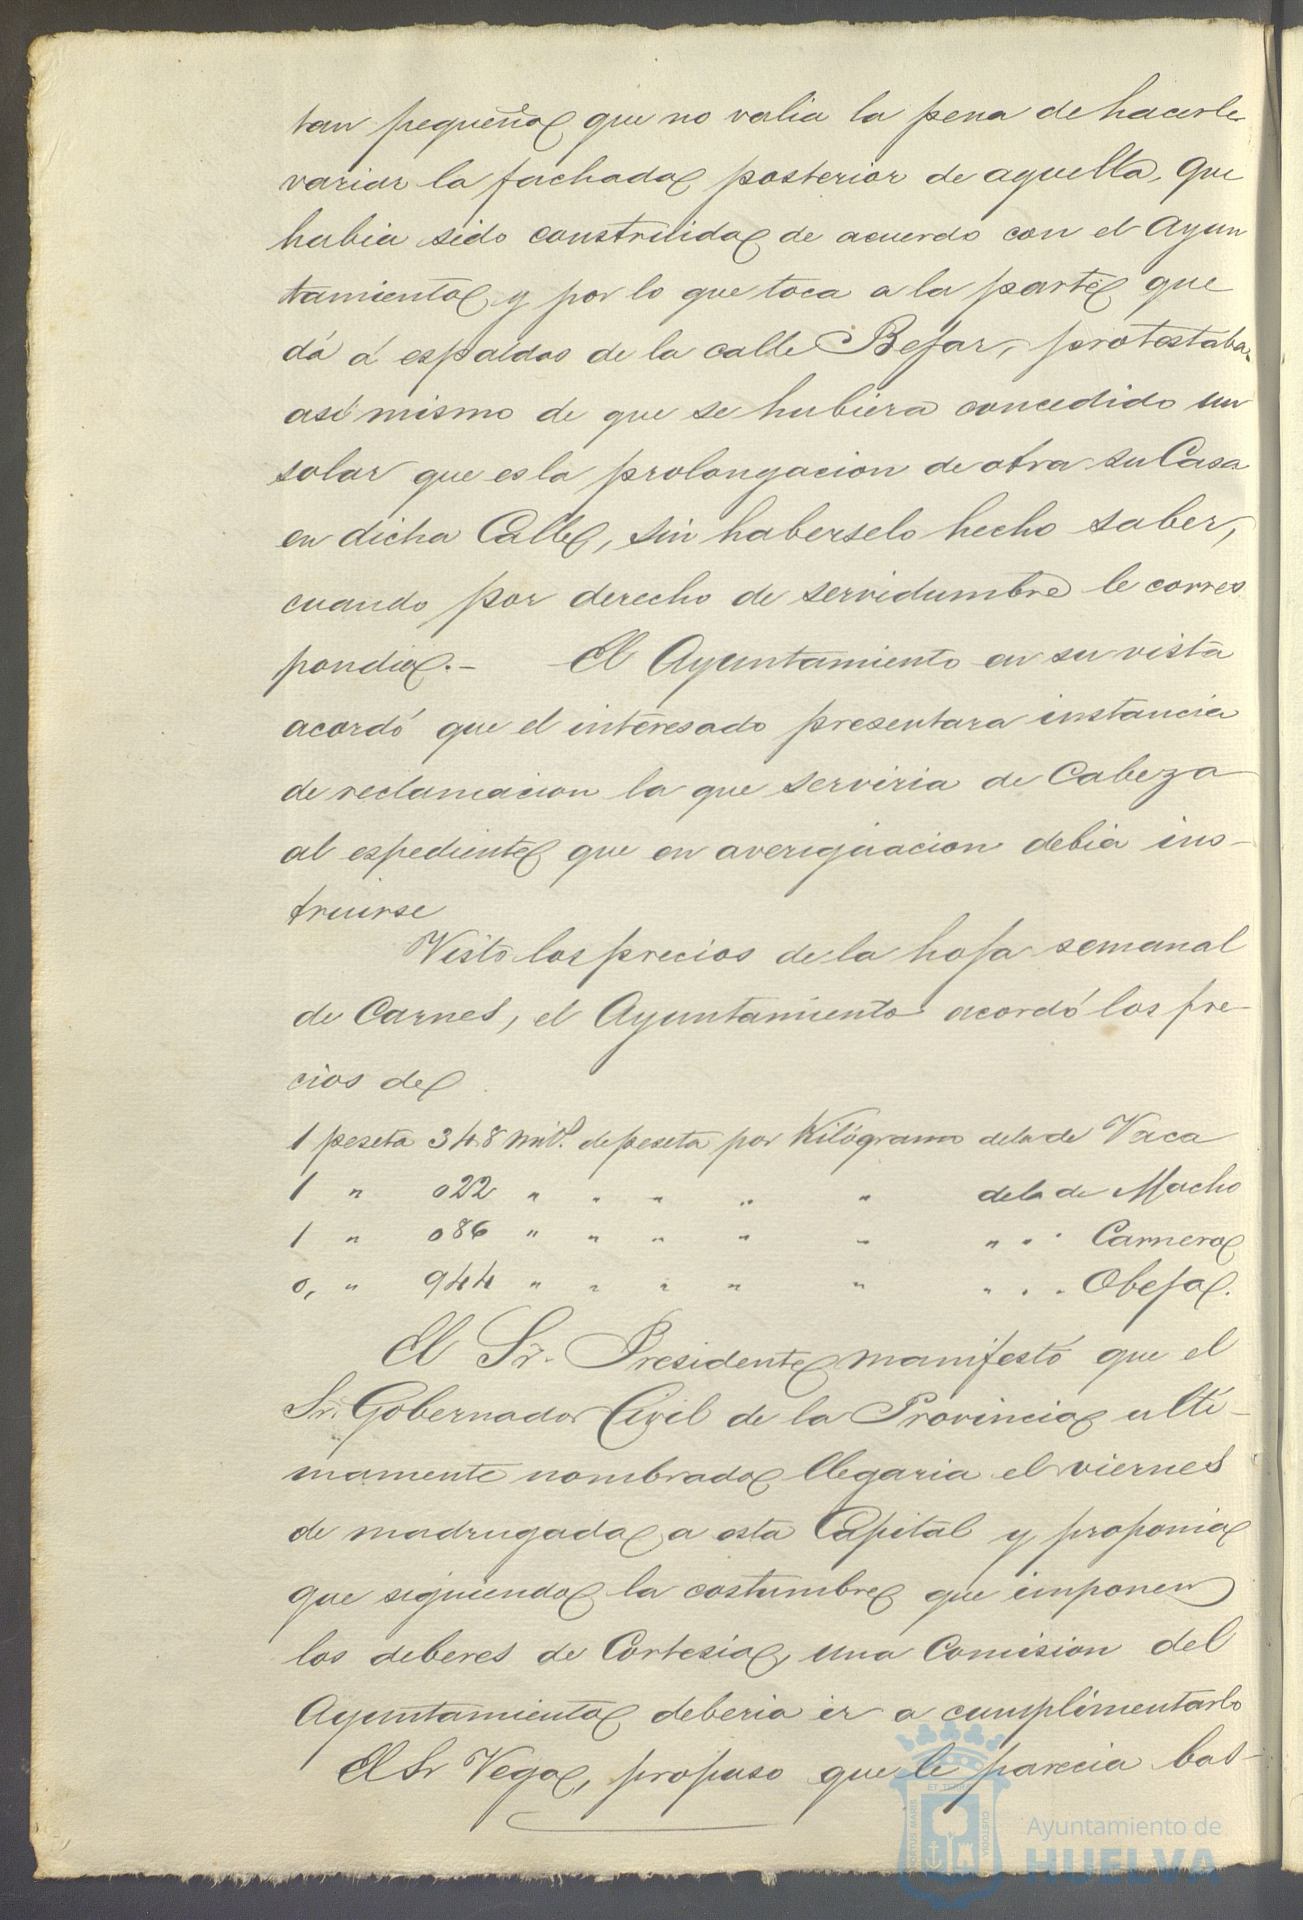 tan pequeña que no valia la pena de hacerle
variar la fachada posterior de aquella, que
habia sido construida de acuerdo con el Ayun
tamiento y por lo que toca a la parte que
dá á espaldas de la calle Bejar, protestaba
así mismo de que se hubiera concedido un
solar que es la prolongacion de otra su Casa
en dicha Calle, sin haberselo hecho saber,
cuando por derecho de servidumbre le corres
pondia.- El Ayuntamiento en su vista
acordó que el interesado presentara instancia
de reclamacion la que serviria de Cabeza
al espediente que en averiguacion debia ins-
truirse
Visto los precios de la hoja semanal
de Carnes, el Ayuntamiento acordó los pre-
cios de
1 peseta 348 mils. de peseta por Kilógramo de la de Vaca
1 " 022 " " " " " de la de Macho
1 " 086 " " " " " " " " Carnero
0, " 944 " " " " " " " " Obeja.
El Sr. Presidente manifestó que el
Sr. Gobernador Civil de la Provincia ulti-
mamente nombrado llegaria el viernes
de madrugada a esta Capital y proponia
que siguiendo la costumbre que imponen
los deberes de Cortesia, una Comision del
Ayuntamiento deberia ir a cumplimentarlo
El Sr Vega, propuso que le parecia bas-
PORTUS MARIS ET TERRE CUSTODIA
Ayuntamiento de
HUELVA